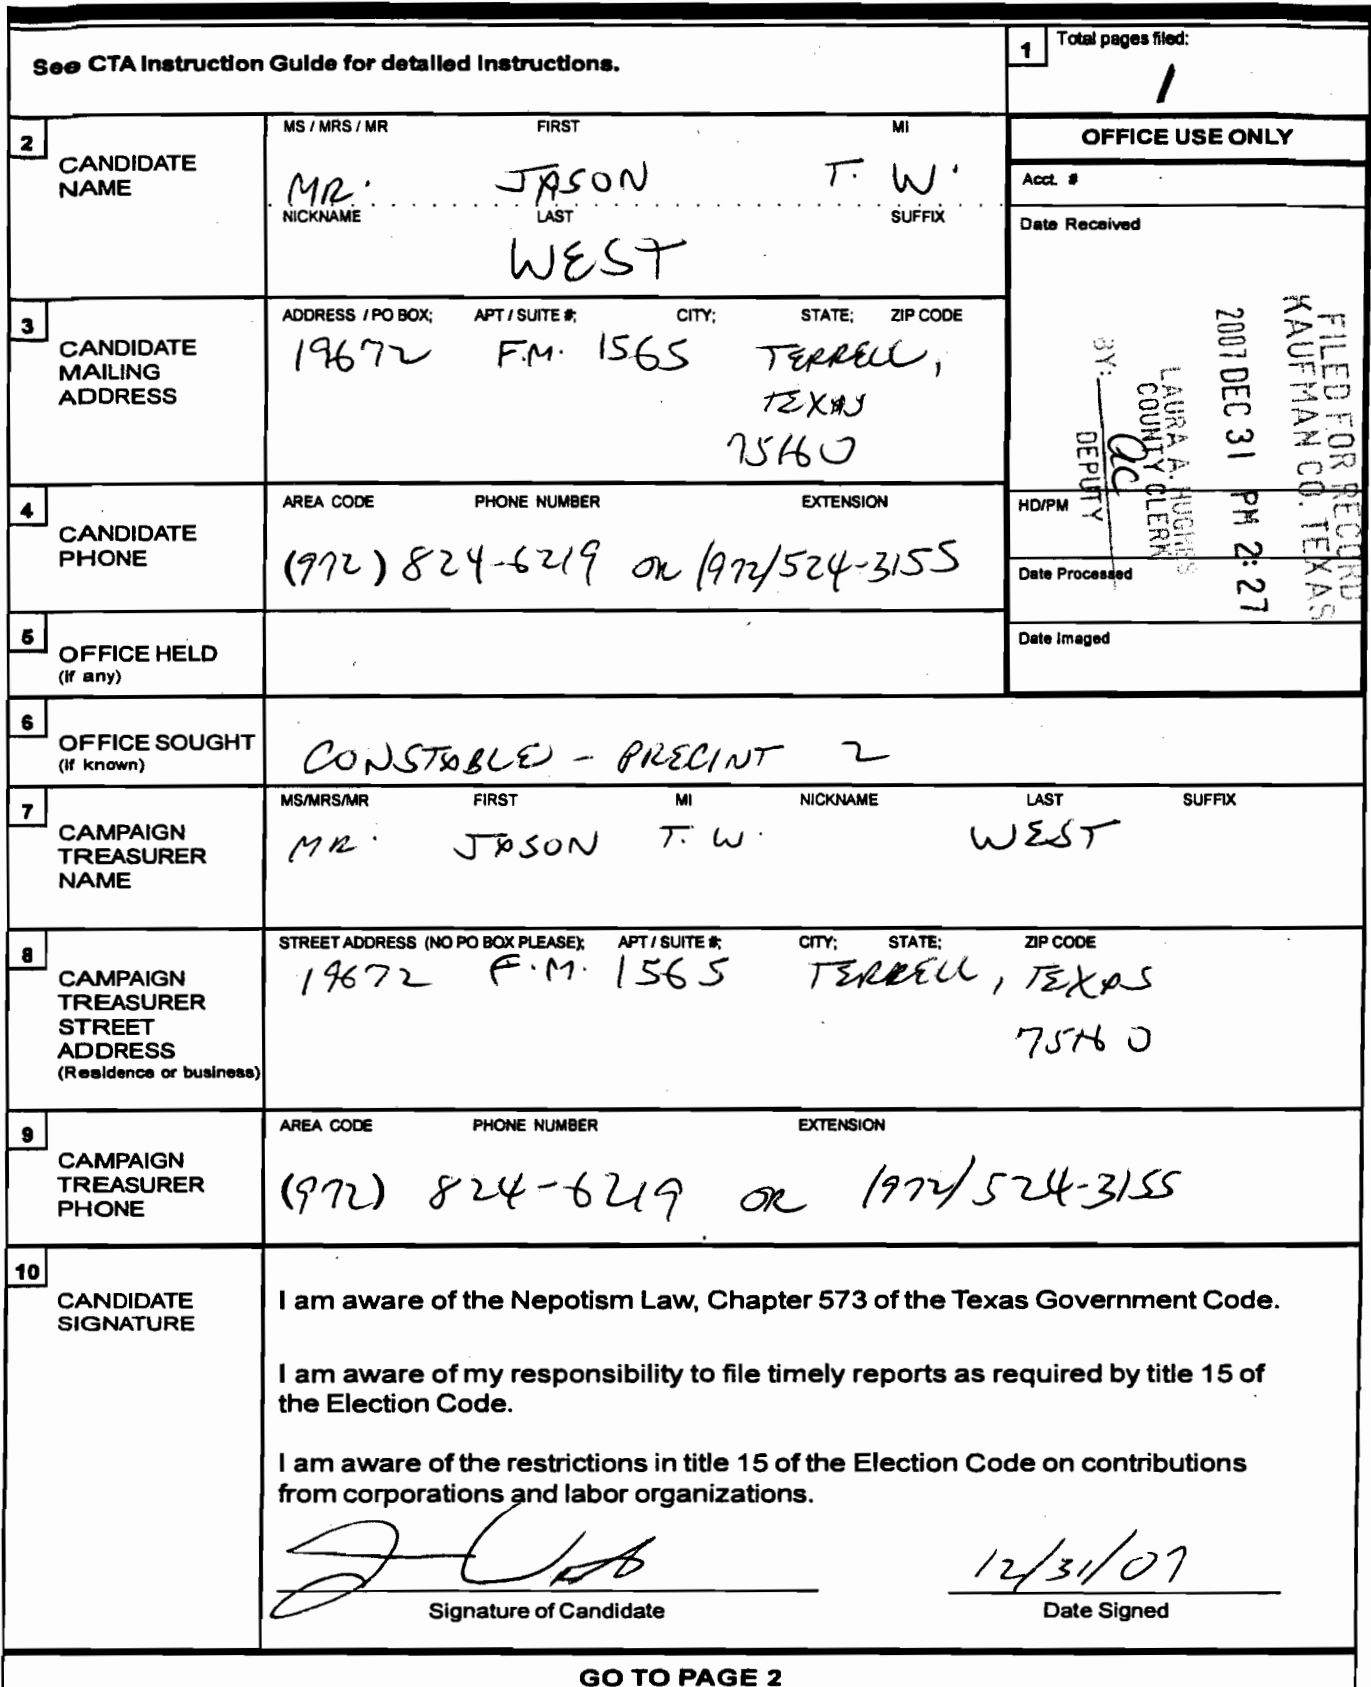 See CTA Instruction Guide for detailed instructions.
1 Total pages filed:
1
2 CANDIDATE NAME
MS / MRS / MR FIRST MI
MR. JASON T. W.
NICKNAME LAST SUFFIX
WEST
OFFICE USE ONLY
Acct. #
Date Received
FILED FOR RECORD
KAUFMAN CO. TEXAS
2007 DEC 31 PM 2:27
LAURA A. HUGHES
COUNTY CLERK
BY:
DEPUTY
HD/PM
Date Processed
Date Imaged
3 CANDIDATE MAILING ADDRESS
ADDRESS / PO BOX; APT / SUITE #; CITY; STATE; ZIP CODE
19672 F.M. 1565 TERRELL,
TEXAS
75160
4 CANDIDATE PHONE
AREA CODE PHONE NUMBER EXTENSION
(972) 824-6219 OR (972) 524-3155
5 OFFICE HELD
(if any)
6 OFFICE SOUGHT
(if known)
CONSTABLE - PRECINT 2
7 CAMPAIGN TREASURER NAME
MS/MRS/MR FIRST MI NICKNAME LAST SUFFIX
MR. JASON T. W. WEST
8 CAMPAIGN TREASURER STREET ADDRESS
(Residence or business)
STREET ADDRESS (NO PO BOX PLEASE); APT / SUITE #; CITY; STATE; ZIP CODE
19672 F.M. 1565 TERRELL, TEXAS
75160
9 CAMPAIGN TREASURER PHONE
AREA CODE PHONE NUMBER EXTENSION
(972) 824-6219 OR (972) 524-3155
10 CANDIDATE SIGNATURE
I am aware of the Nepotism Law, Chapter 573 of the Texas Government Code.
I am aware of my responsibility to file timely reports as required by title 15 of
the Election Code.
I am aware of the restrictions in title 15 of the Election Code on contributions
from corporations and labor organizations.
12/31/07
Signature of Candidate Date Signed
GO TO PAGE 2